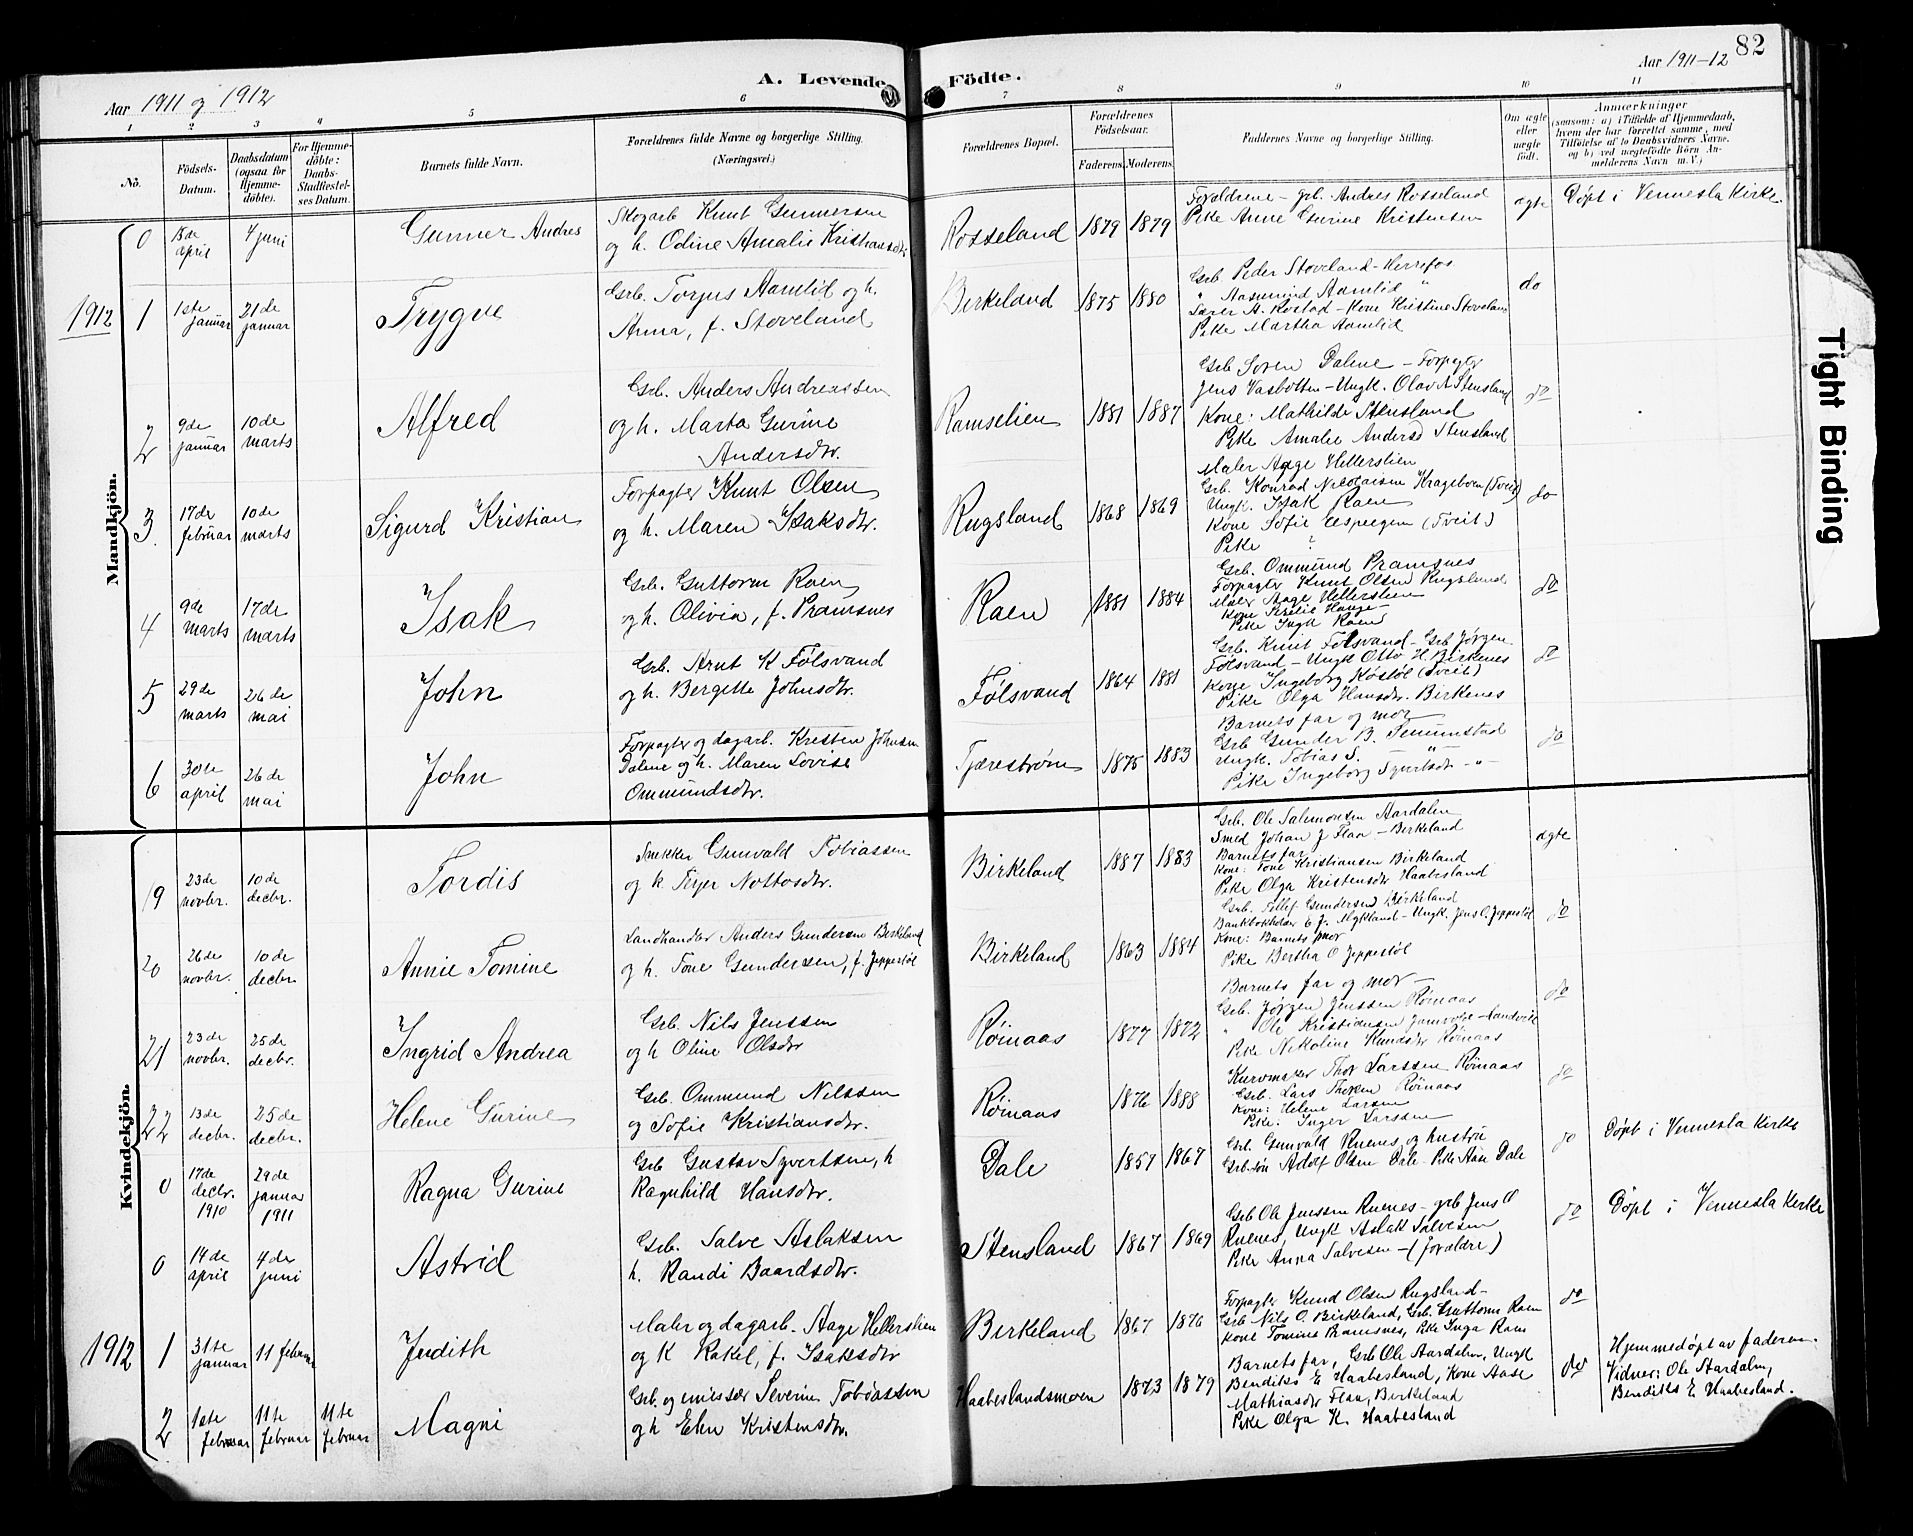 82
A. Levende Födte.
Aar 1911 og 1912
Aar 1911-12
1 2 3 4 5 6 7 8 9 10 11
No.
Födsels-Datum.
Daabsdatum (ogsaa for Hjemme-döbte).
For Hjemme-döbte: Daabs-Stadfæstel-ses Datum.
Barnets fulde Navn.
Forældrenes fulde Navne og borgerlige Stilling. (Næringsvei.)
Forældrenes Bopæl.
Forældrenes Födselsaar.
Faderens. Moderens.
Faddernes Navne og borgerlige Stilling.
Om ægte eller uægte födt.
Anmærkninger
(saasom: a) i Tilfælde af Hjemmedaab,
hvem der har forrettet samme, med
Tilföielse af to Daabsvidners Navne.
og b) ved uægtefödte Börn An-
melderens Navn m. V.)
Mandkjön.
0 18de april 4 juni Gunner Andres
Skogarb Knut Gunnersen
og h. Odine Amalie Kristiansdtr
Rosseland 1879 1879
Forældrene - grb. Andres Rosseland
Pike Anne Gurine Kristensen
ægte
Døpt i Vennesla Kirke
1912
1 1ste januar 21de januar Trygve
Grb. Torjus Aamlid og h.
Anna, f. Stoveland
Birkeland 1875 1880
Grb. Peder Stoveland - Herrefos
" Aasmund Aamlid "
Lærer A. Rostad - Kone Kristine Stoveland
Pike Martha Aamlid
do
2 9de januar 10de marts Alfred
Grb. Anders Andreassen
og h. Marta Gurine
Andersdtr.
Ramselien 1881 1887
Grb Soren Dalene - Forpagter
Jens Vasbotten - Ungk. Olav A Stensland
Kone: Mathilde Stensland
Pike Amalie Andersd Stensland
do
3. 17de februar 10de marts Sigurd Kristian
Forpagter Knut Olsen
og h. Maren Isaksdtr.
Rugsland 1868 1869
Maler Aage Hellerslien
Grb. Konrad Nicolaisen Krageboen (Tveit)
Ungk. Isak Raen
Kone Sofie Espeegen (Tveit)
Pike ?
do
4 9de marts 17de marts Isak
Grb. Guttorm Raen
og h. Olivia, f. Pramsnes
Raen 1881 1884
Grb. Ommund Pramsnes
Forpagter Knut Olsen Rugsland
Maler Aage Hellerslien
Kone Hauge
Pike Raen
do
5 29de marts 26de mai John
Grb. Arnt K Følsvand
og h. Bergette Johnsdtr.
Følsvand 1864 1881
Grb. Knut Følsvand - Grb Jörgen
Følsvand - Ungk Otto H. Birkenes
Kone Ingeborg Kostøl (Tveit)
Pike Olga Hansdtr. Birkenes
do
6 30te april 26de mai John
Forpagter og dagarb. Kresten Johnsen
Dalene og h. Maren Lovise
Ommundsdtr.
Tjærestrøm 1875 1883
Barnets far og mor
Grb Gunder B.
Ungk. Tobias S. -"-
Pike Ingeborg Syvertsdtr -"-
do
Kvindekjön.
19 23de novbr. 10de decbr. Tordis
Snekker Gunvald Tobiassen
og h Terjer Nottosdtr.
Birkeland 1887 1883
Grb. Ole Salamonsen Aardalen
Smed Johan J Flaa - Birkeland
Barnets far
Kone: Tone Kristiansen Birkeland
Pike Olga Kristensdtr Haabesland
ægte
20 26de novbr. 10de decbr Annie Tomine
Landhandler Anders Gundersen Birkeland
og h. Tone Gundersen, f. Jeppestøl
Birkeland 1863 1884
Grb. Tellef Gundersen Birkeland
Bankbokholder E J. Mykland - Ungk. Jens O. Jeppestøl
Kone: Barnets mor
Pike Bertha O Jeppestøl
do
21 23de novbr. 25de decbr. Ingrid Andrea
Grb. Nils Jenssen
og h Oline Olsdtr
Røinaas 1877 1872
Barnets far og mor -
Grb. Jörgen Jenssen Røinaas
" Ole Kristiansen Landvik
Pike Nikoline Knudsdtr Røinaas
do
22 13de decbr. 25de decbr. Helene Gurine
Grb. Ommund Nilssen
og Sofie Kristiansdtr.
Røinaas 1876 1888
Kurvmaker Thor Larssen Røinaas
Grb. Lars Thorsen Røinaas
Kone: Helene Larsen
Pike: Inger Larssen
do
0 17de decbr. 1910 29de januar 1911 Ragna Gurine
Grb Gustav Syvertsen, h
Ragnhild Hansdtr.
Dale 1857 1867
Grb. Gunvald Ruenes og hustru
Grb.søn Adolf Olsen Dale - Pike Aase Dale
do
Døpt i Vennesla Kirke
0 14de april 4de juni Astrid
Grb. Salve Aslaksen
h. Randi Baardsdtr.
Stensland 1867 1869
Grb Ole Jenssen Ruenes - grb Jens O
Ruenes, Ungk Aslak Salvesen
Pike Anna Salvesen - (forældre)
do
Døpt i Vennesla Kirke
1912 1 31te januar 11 februar Judith
Maler og dagarb. Aage Hellerslien
og K Rakel, f. Isaksdtr
Birkeland 1867 1876
Forpagter Knud Olsen Rugsland -
Grb Nils O. Birkeland, Grb. Guttorm Raen
Kone Tomine Pramsnes, Pike Inga Raen
do
2 1ste februar 11te februar 11te februar Magni
Grb. og emissær Severin Tobiassen
og h Elen Kristensdtr.
Haabeslandsmoen 1873 1879
Barnets far, Grb Ole Aardalen, Ungk
Bendiks E Haabesland, Kone Aase
Mathiasdtr Flaa, Birkeland
Pike Olga K. Haabesland
do
Hjemmedøpt av faderen.
Vidner: Ole Aardalen,
Bendiks E Haabesland.
Tight Binding